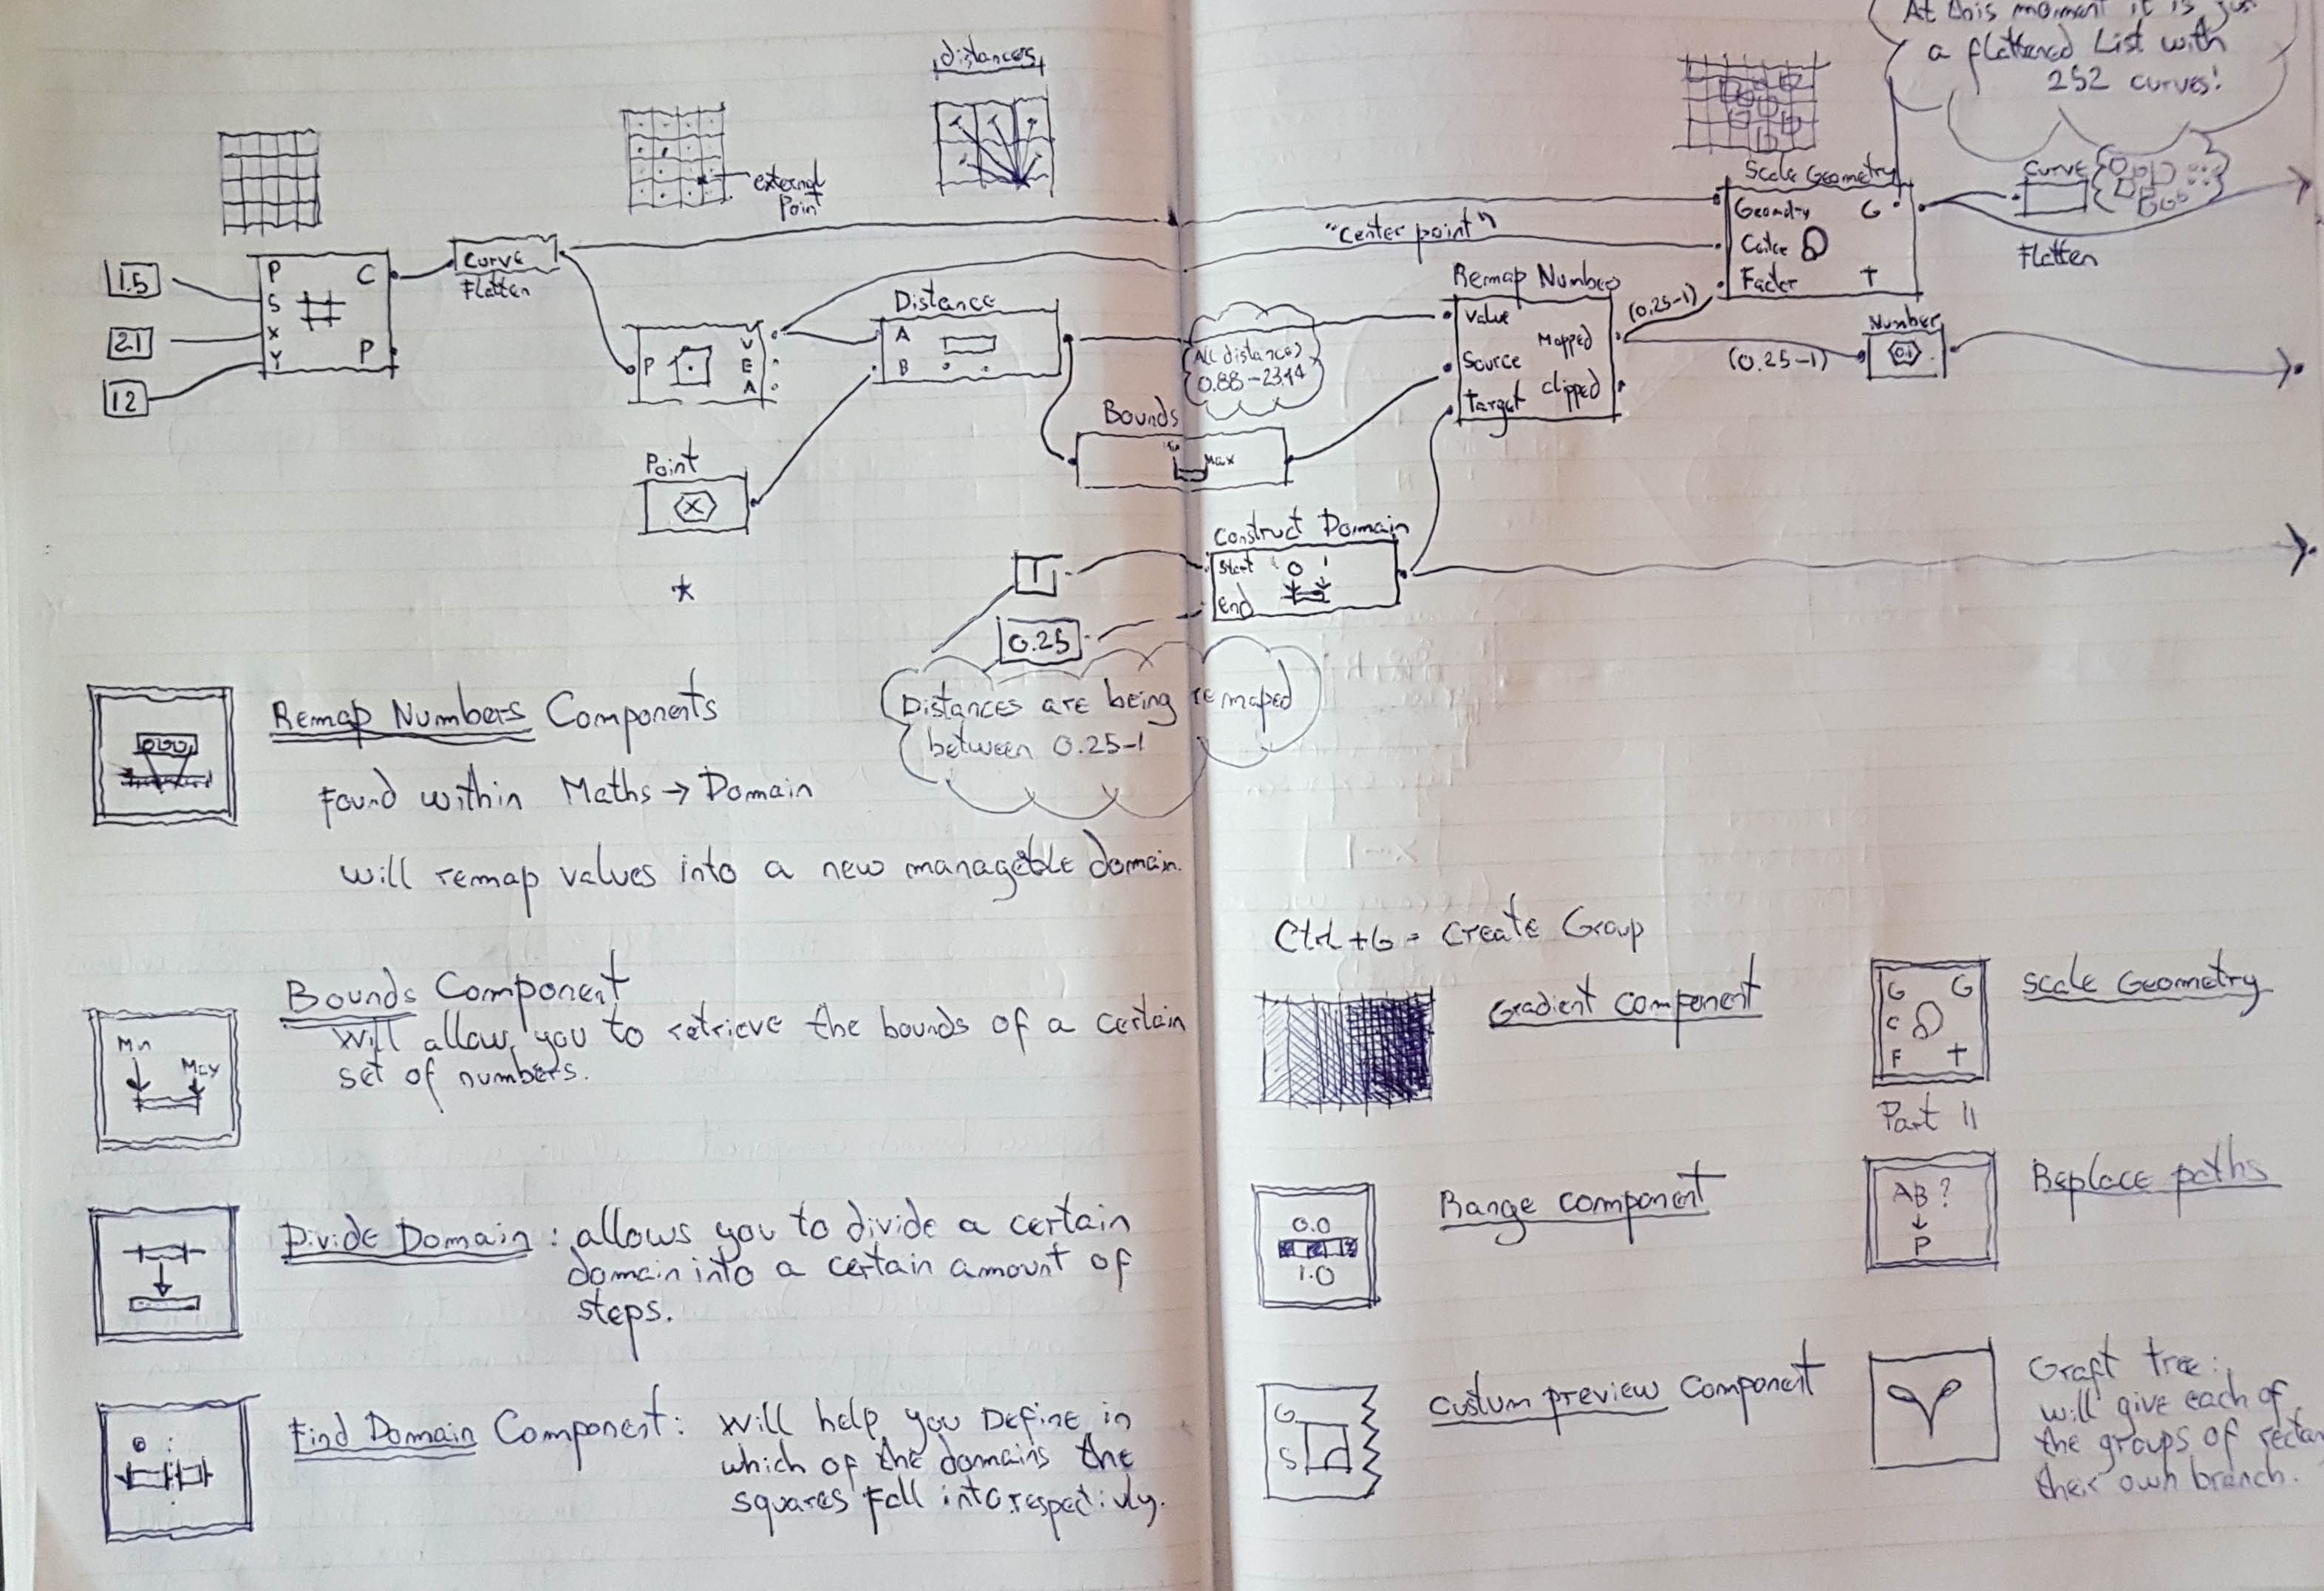 At this moment it is jus
a flattened List with
252 curves!
distances
external
Point
1.5
21
12
P
S
X
Y
C
P
Curve
Flatten
P
V
E
A
Point
X
Distance
A
B
"Center point"
All distances
0.88-23.44
Bounds
Max
Construct Domain
Start
End
0 1
1
0.25
Distances are being remaped
between 0.25-1
Remap Number
Value
Source
Target
Mapped
Clipped
(0.25-1)
(0.25-1)
Scale Geometry
Geometry
Factor
G
T
Curve
Flatten
Number
0.1
Remap Numbers Components
Found within Maths → Domain
will remap values into a new managable domain.
Bounds Component
Will allow you to retrieve the bounds of a certain
set of numbers.
Min
Max
Divide Domain : allows you to divide a certain
domain into a certain amount of
steps.
Find Domain Component: Will help you Define in
which of the domains the
squares fall into respectivly.
Ctrl + G = Create Group
Gradient component
Scale Geometry
G G
C
F T
Part II
Range component
0.0
1.0
Replace paths
AB ?
P
Custum preview Component
G
S
Graft tree:
will give each of
the groups of rectan
their own branch.